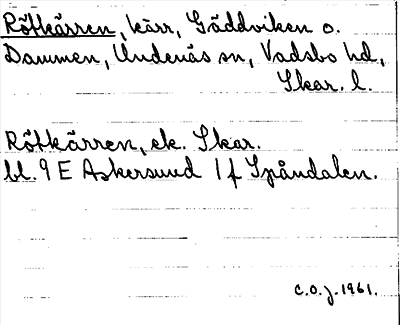 Rötkärren, kärr, Gäddviken o.
Dammen, Undenäs sn, Vadsbo hd,
Skar. l.
Rötkärren, ek. Skar.
bl. 9 E Askersund 1 f Spåndalen.
C.O.J. 1961.